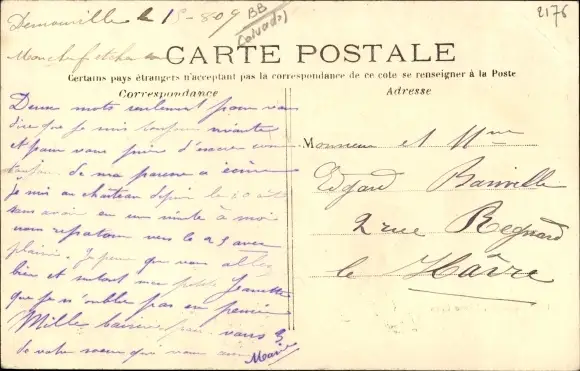 Demouville le 15-8-09
BB
(Calvados)
2176
CARTE POSTALE
Certains pays étrangers n'acceptant pas la correspondance de ce coté se renseigner à la Poste
Correspondance
Adresse
Deux mots seulement pour vous
dire que je suis toujours vivante
et pour vous
de ma à écrire
Je suis au chateau depuis le 20
sans avoir eu une minute à moi
nous repartons vers le 23 avec
plaisir. Je pense que vous allez
bien et surtout ma petite Jeannette
que je n'oublie pas en pensée
Mille baisers pour vous 3
de votre soeur qui vous aime
Marie
Monsieur et Mme
Edgard Banville
2 rue Regnard
le Hâvre